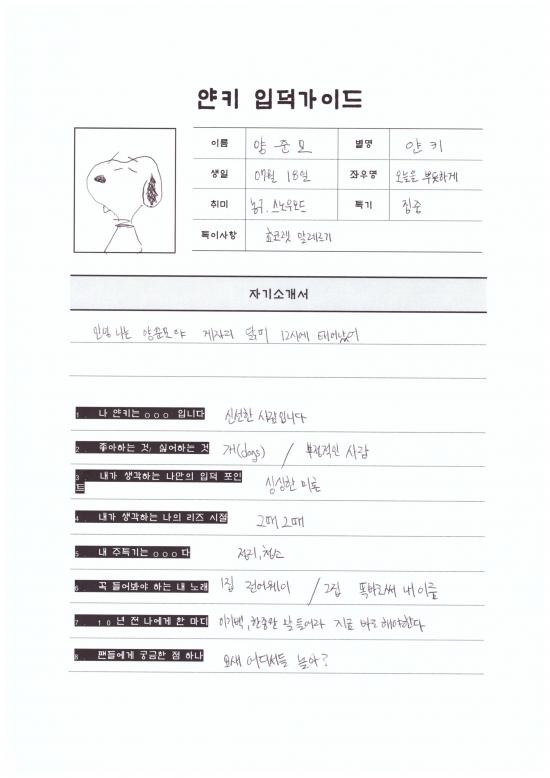 얀키 입덕가이드
이름 양준모 별명 얀키
생일 07월 18일 좌우명 오늘을 뿌듯하게
취미 농구, 스노우보드 특기 집중
특이사항 초코렛 알레르기
자기소개서
안녕 나는 양준모야 게자리 닭띠 12시에 태어났어
1. 나 얀키는 ㅇㅇㅇ 입니다 신선한 사람입니다
2. 좋아하는 것/ 싫어하는 것 개(dogs) / 부정적인 사람
3. 내가 생각하는 나만의 입덕 포인
트 싱싱한 미륵
4. 내가 생각하는 나의 리즈 시절 그때 그때
5. 내 주특기는 ㅇㅇㅇ다 정리, 청소
6. 꼭 들어봐야 하는 내 노래 1집 런어웨이 / 2집 똑바로써 내 이름
7. 10년 전 나에게 한 마디 이기백, 한중만 말 들어라 지금 바로 해야한다
8. 팬들에게 궁금한 점 하나 요새 어디서들 놀아?